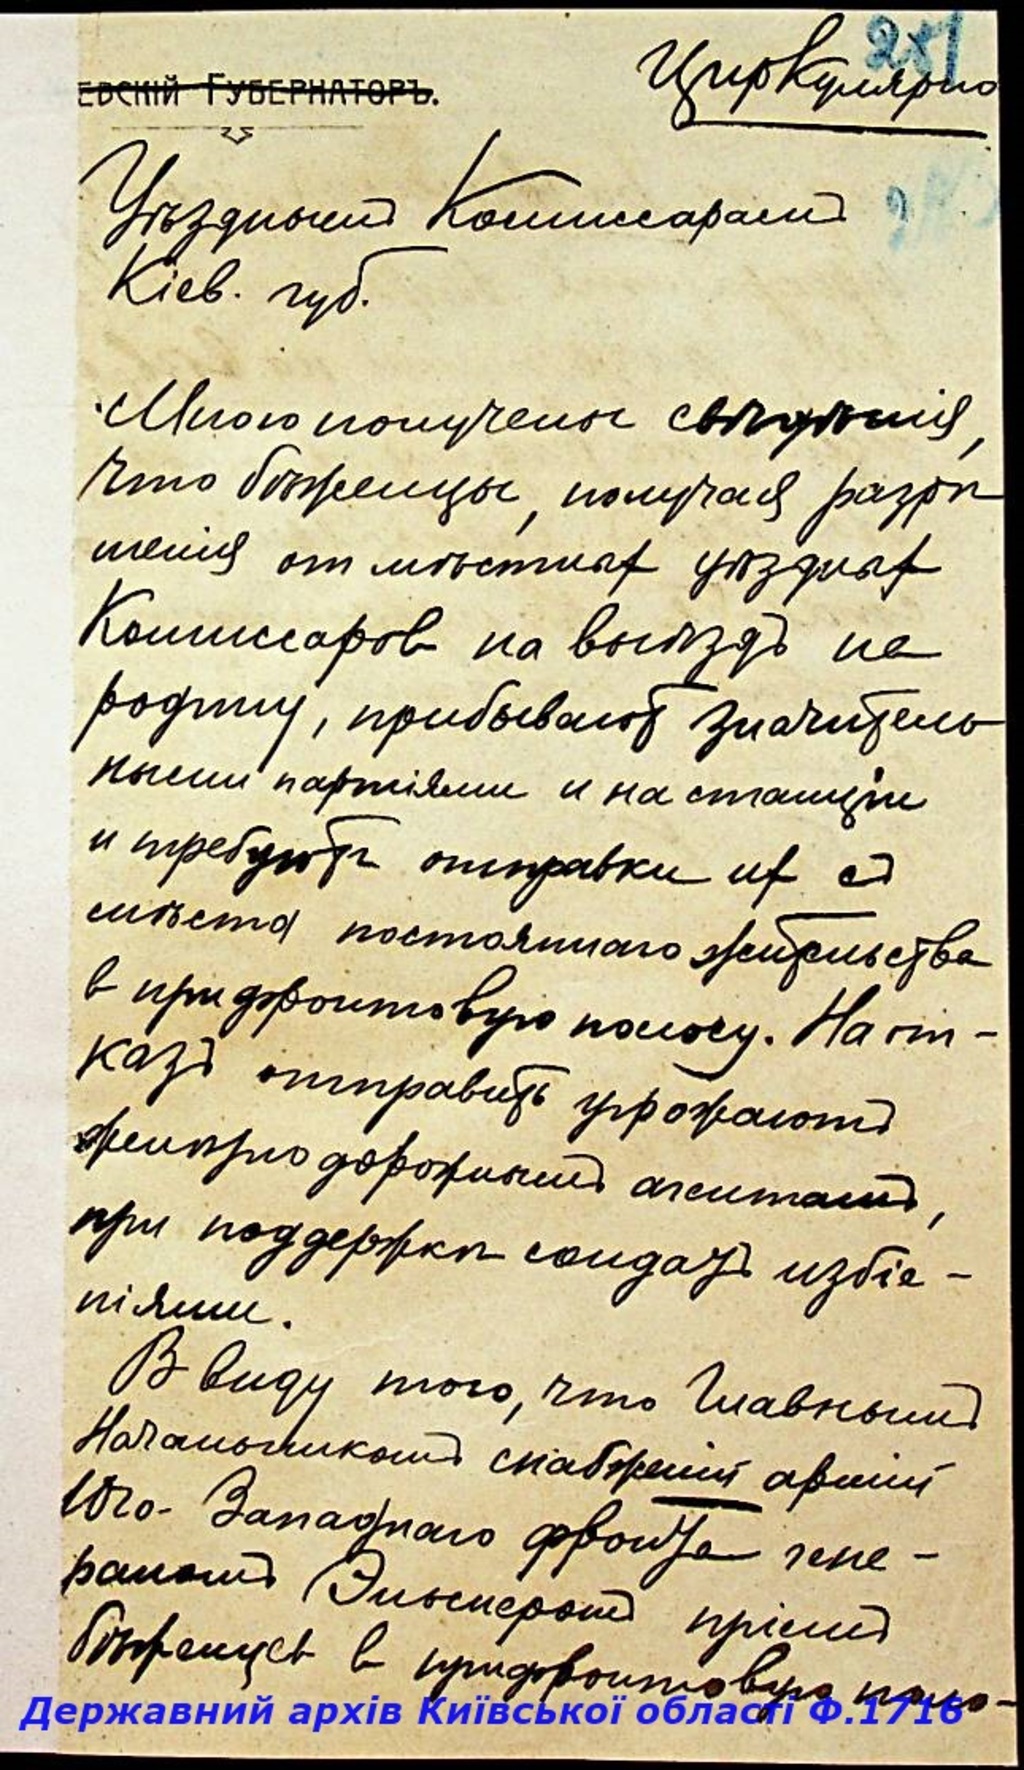 251
Циркулярно
ЕВСКІЙ ГУБЕРНАТОРЪ.
Уѣзднымъ Комиссарамъ
Кіев. губ.
Мною получены свѣдѣнія,
что бѣженцы, получая разрѣ
шенія от мѣстных уѣздных
Комиссаров на выѣздъ на
родину, прибывают значитель
ными партіями и на станціи
и требуютъ отправки их съ
мѣста постояннаго жительства
в прифронтовую полосу. На от-
казъ отправить угрожаютъ
желѣзнодорожнымъ агентамъ,
при поддержкѣ солдатъ избіе-
ніями.
В виду того, что Главнымъ
Начальникомъ снабженій армій
Юго-Западнаго фронта гене-
раломъ Эльснеромъ пріемъ
бѣженцев в прифронтовую поло-
Державний архів Київської області Ф.1716